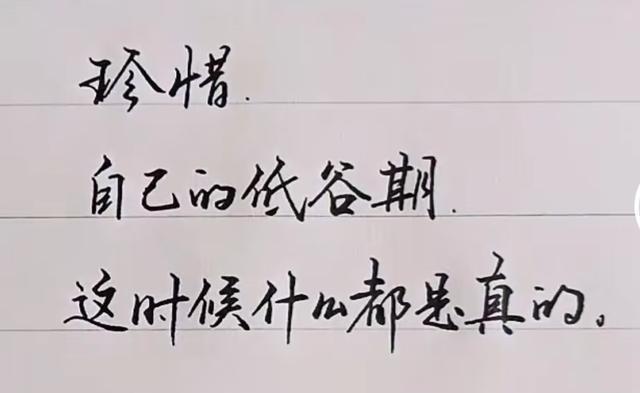 珍惜.
自己的低谷期.
这时候什么都是真的。